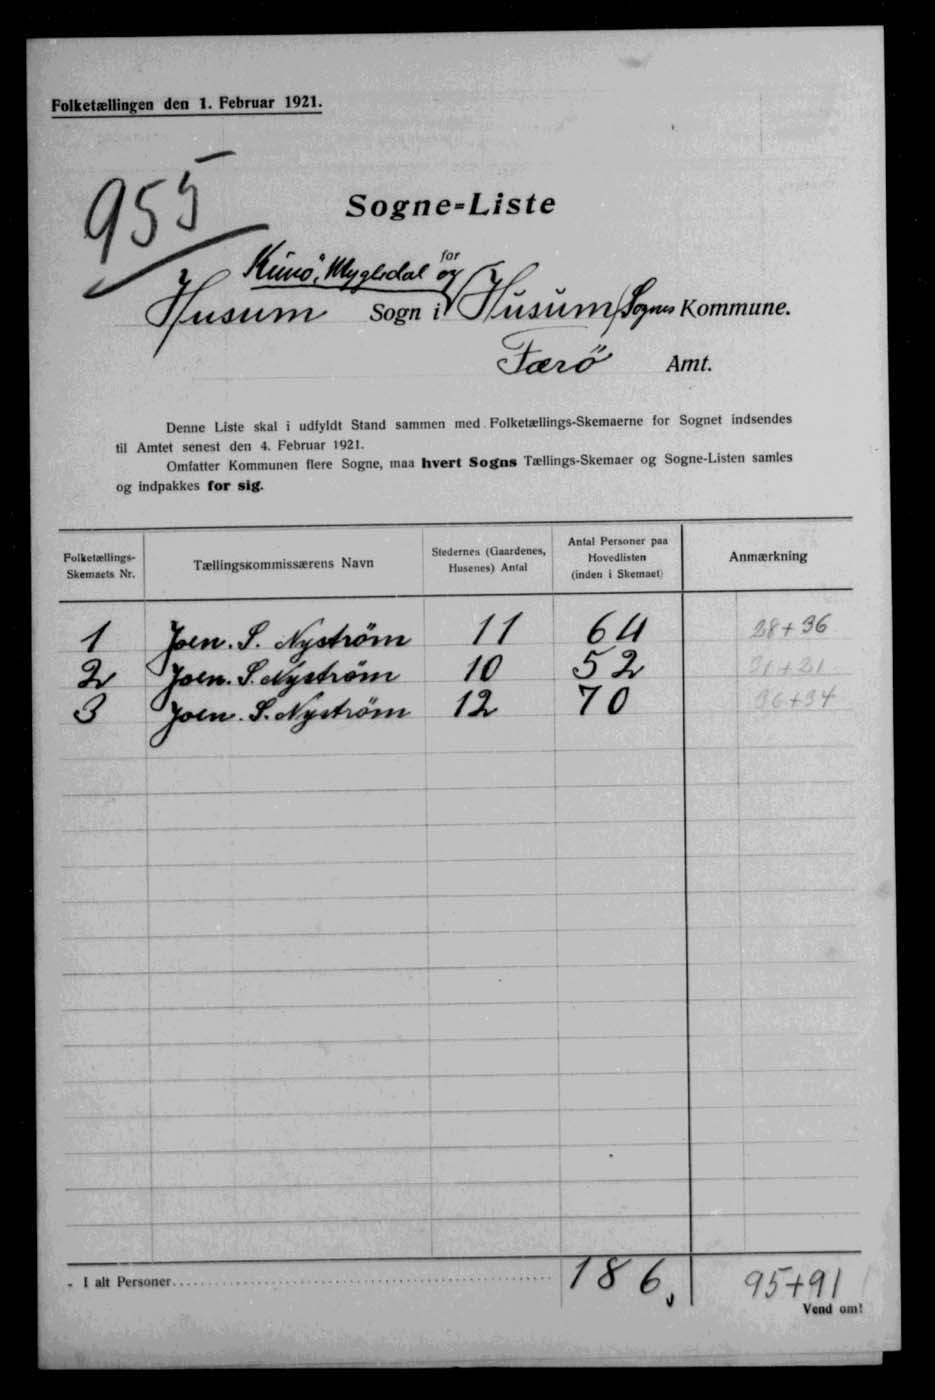 Folketællingen den 1. Februar 1921.
955
Sogne-Liste
for
Kunö, Myglidal og
Husum Sogn i Husum Sognes Kommune.
Færö Amt.
Denne Liste skal i udfyldt Stand sammen med Folketællings-Skemaerne for Sognet indsendes
til Amtet senest den 4. Februar 1921.
Omfatter Kommunen flere Sogne, maa hvert Sogns Tællings-Skemaer og Sogne-Listen samles
og indpakkes for sig.
Folketællings-Skemaets Nr. Tællingskommissærens Navn Stedernes (Gaardenes, Husenes) Antal Antal Personer paa Hovedlisten (inden i Skemaet) Anmærkning
1 Joen. S. Nyström 11 64 28+36
2 Joen. S. Nyström 10 52 31+21
3 Joen. S. Nyström 12 70 36+34
I alt Personer 186 95+91
Vend om!